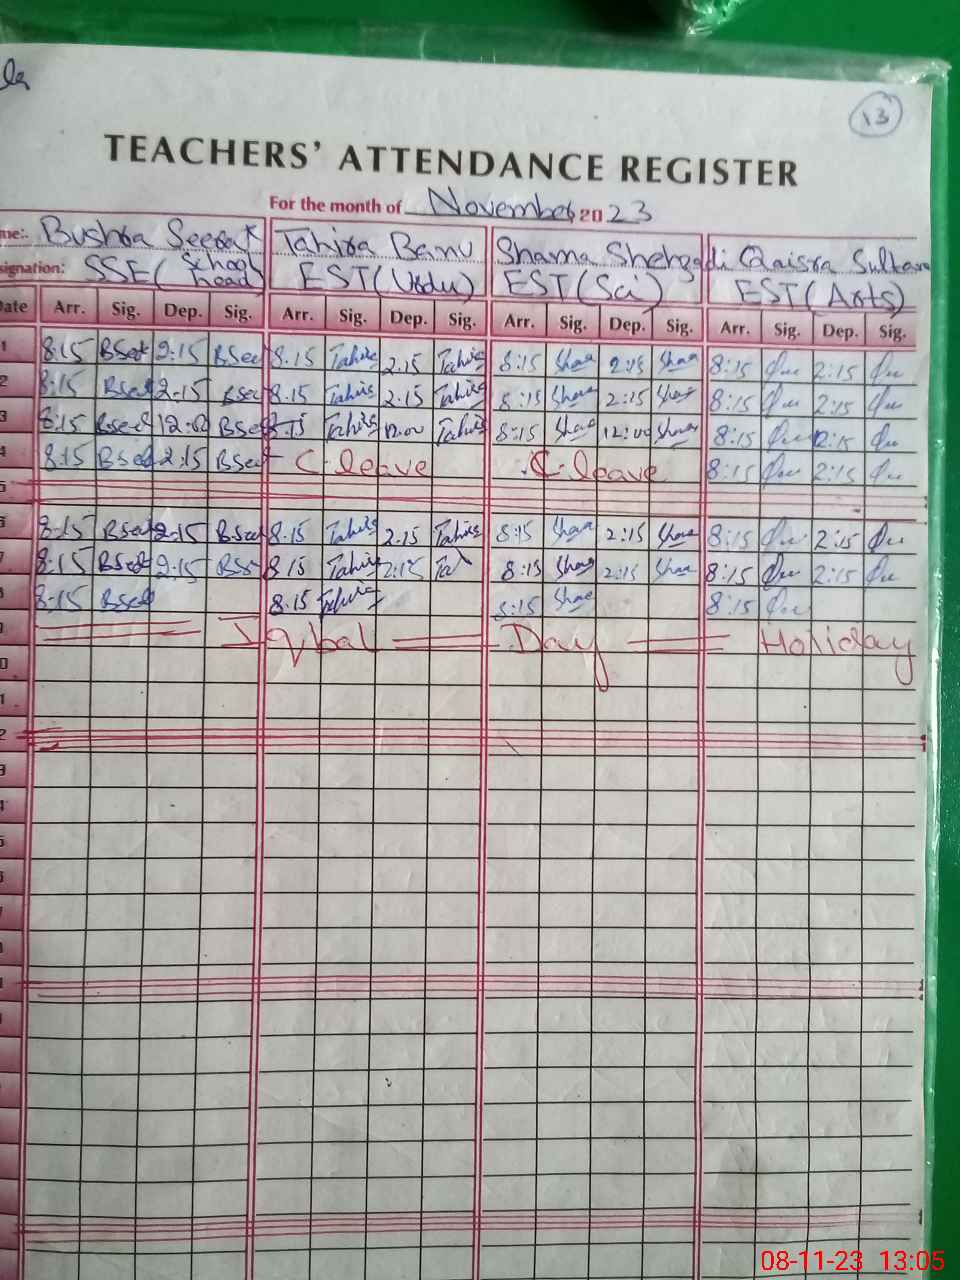 13
TEACHERS' ATTENDANCE REGISTER
For the month of November 2023
me:. Bushra Seerat Tahira Banu Shama Shehzadi Qaisra Sultana
signation: SSE (School head) EST (Urdu) EST (Sci) EST (Arts)
Date Arr. Sig. Dep. Sig. Arr. Sig. Dep. Sig. Arr. Sig. Dep. Sig. Arr. Sig. Dep. Sig.
1 8:15 BSeet 2:15 BSee 8.15 Tahira 2.15 Tahira 8:15 Sham 2:15 Sham 8:15 2:15
2 8:15 BSeet 2:15 BSee 8.15 Tahira 2.15 Tahira 8:15 Sham 2:15 Sham 8:15 2:15
3 8:15 BSeet 12:00 BSee 8.15 Tahira 12.00 Tahira 8:15 Sham 12:00 Sham 8:15 12:15
4 8:15 BSeet 2:15 BSeet C-leave C-leave 8:15 2:15
5
6 8:15 BSeet 2:15 BSeet 8.15 Tahira 2.15 Tahira 8:15 Sham 2:15 Sham 8:15 2:15
7 8:15 BSeet 2:15 8.15 Tahira 2:15 8:15 Sham 2:15 Sham 8:15 2:15
8:15 BSeet 8.15 Tahira 8:15 Sham 8:15
Iqbal Day Holiday
0
1
2
3
4
5
08-11-23 13:05